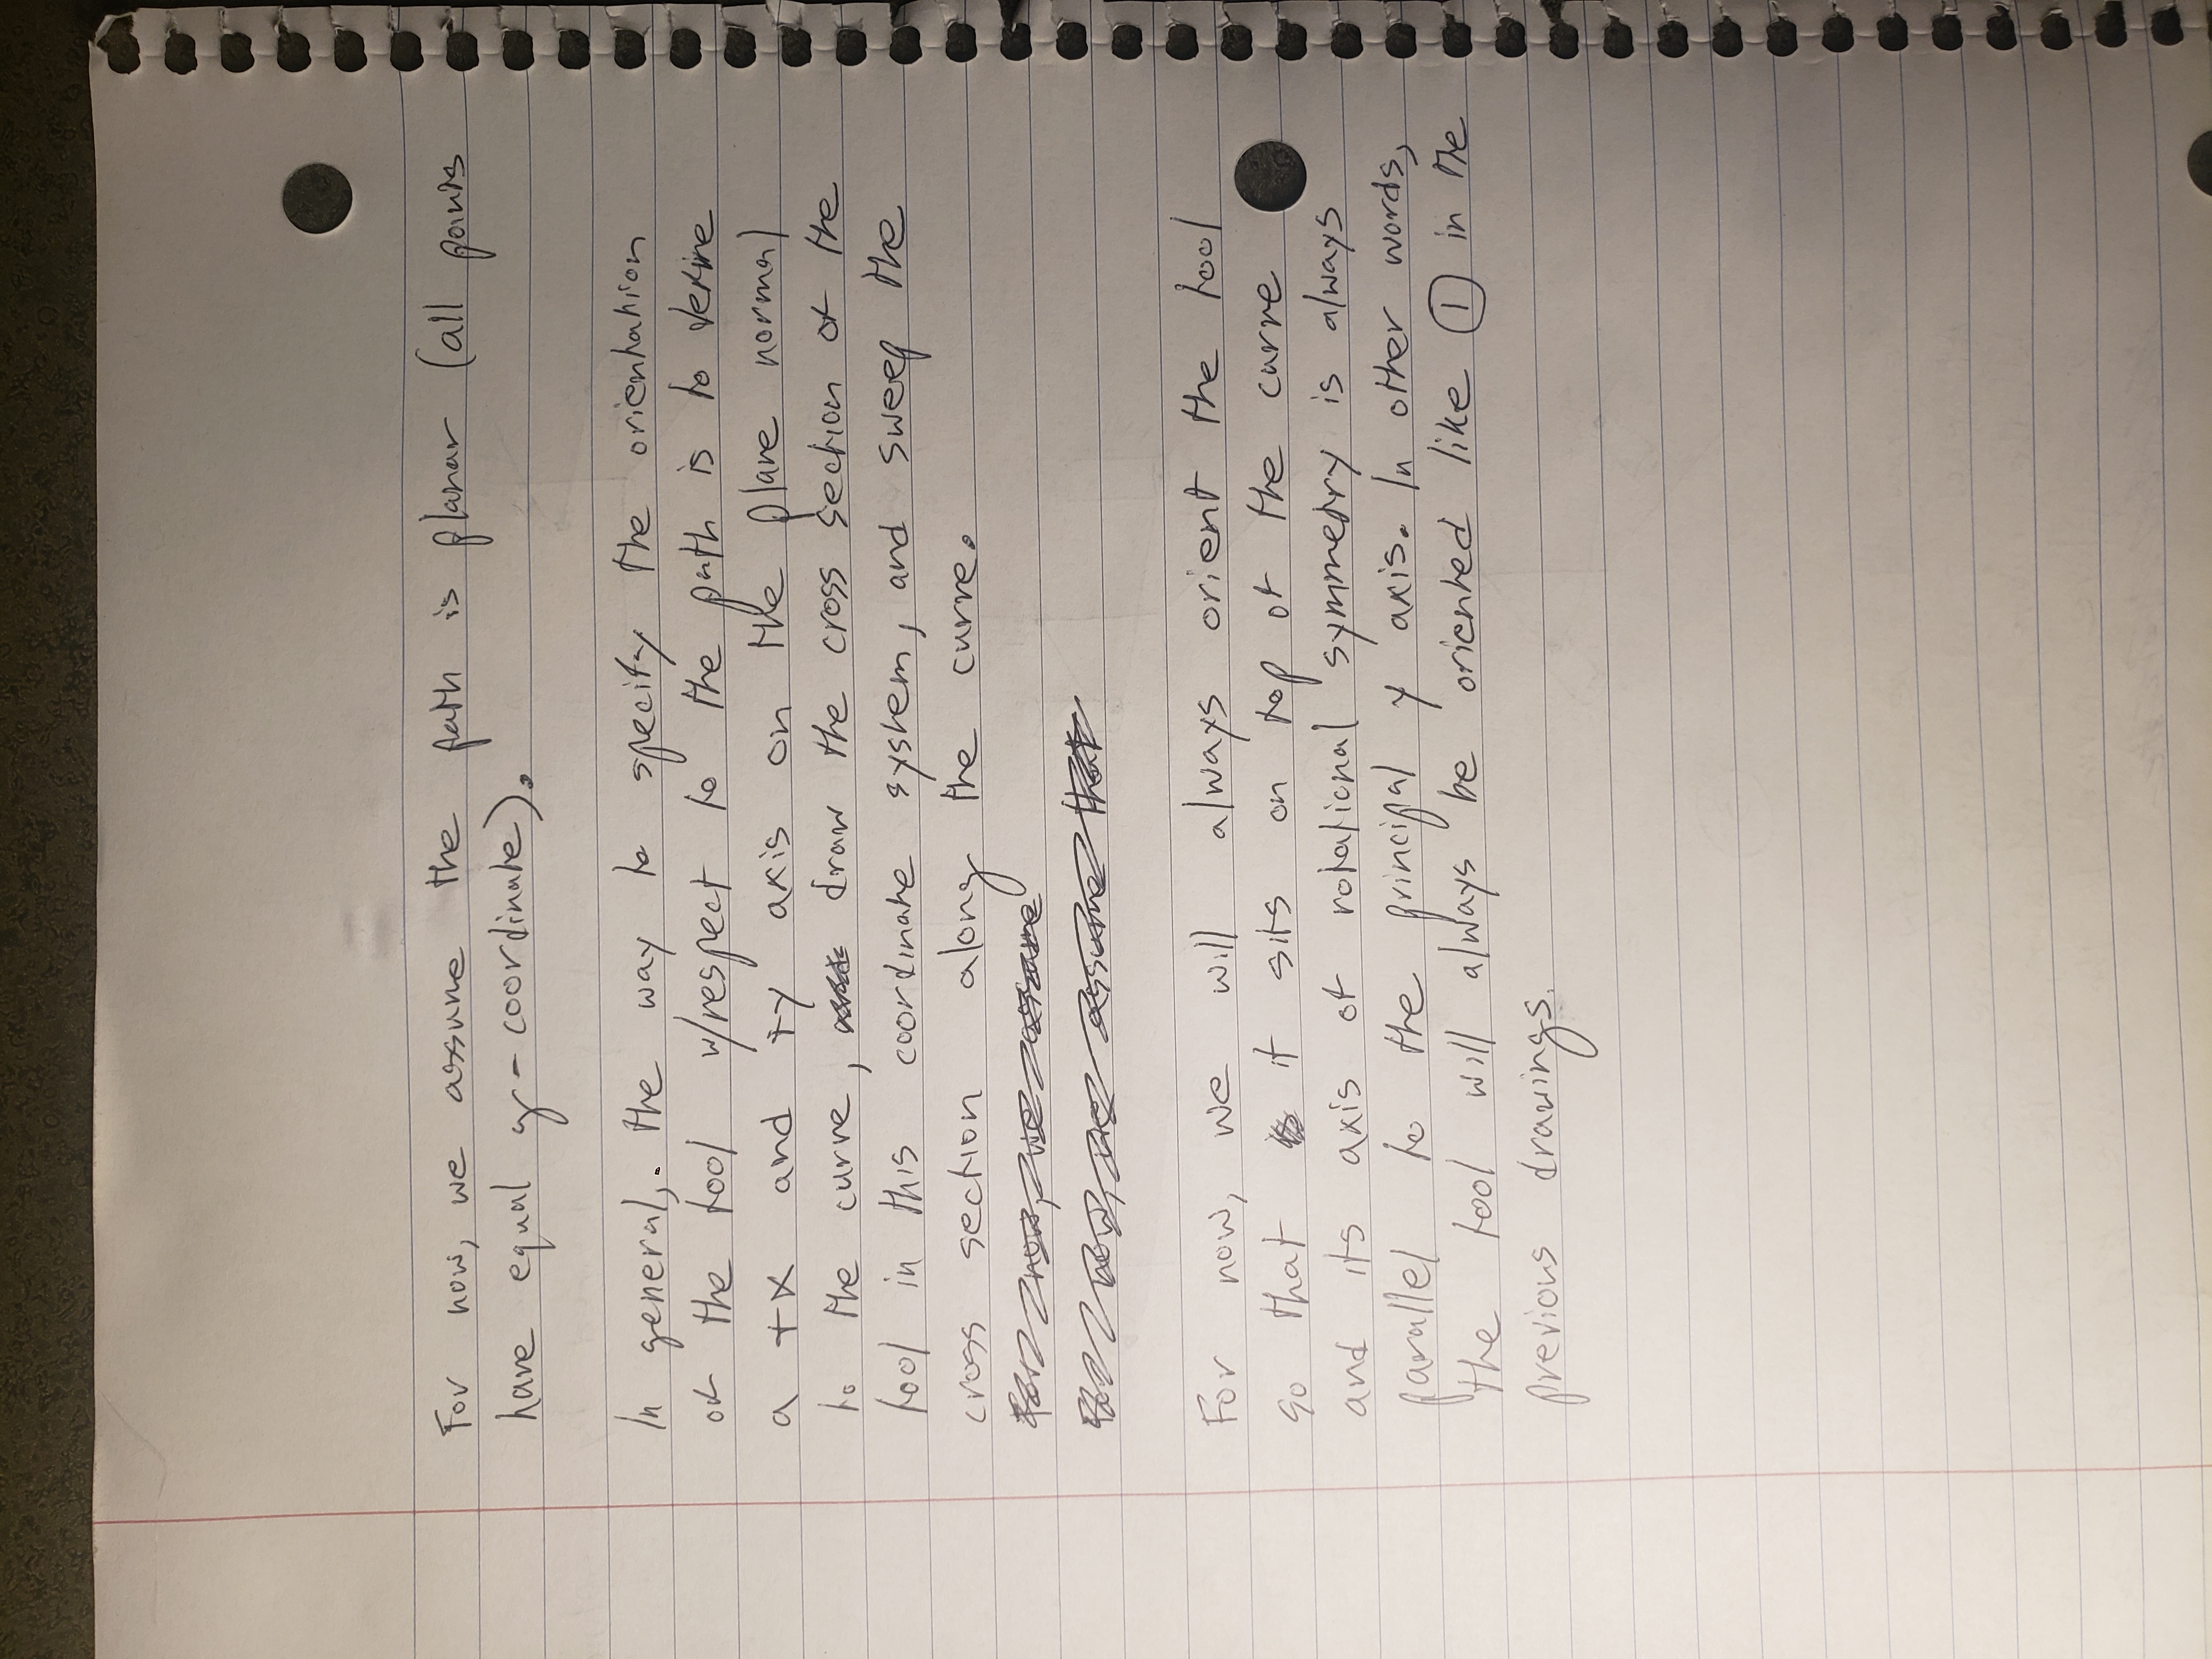 For now, we assume the path is planar (all points
have equal y-coordinate).
In general, the way to specify the orientation
of the tool w/respect to the path is to define
a +x and +y axis on the plane normal
to the curve, draw the cross section of the
tool in this coordinate system, and sweep the
cross section along the curve.
For now, we assume
For now, we assume that
For now, we will always orient the tool
so that it sits on top of the curve
and its axis of rotational symmetry is always
parallel to the principal y axis. In other words,
the tool will always be oriented like ① in the
previous drawings.